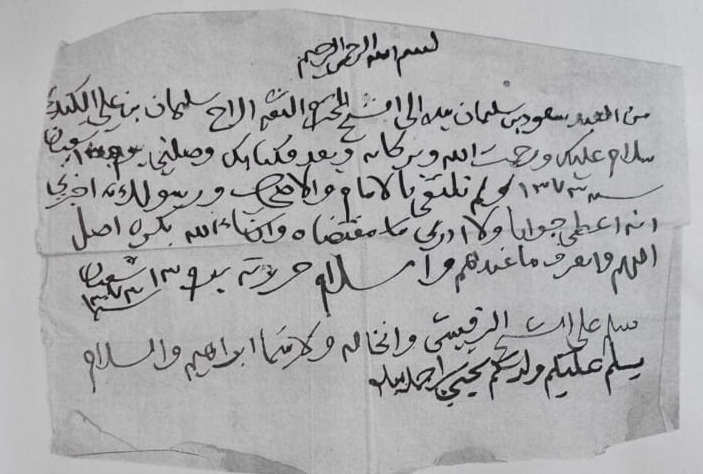 بسم الله الرحمن الرحيم
من العبد سعود بن سليمان بيده إلى الشيخ المحترم الثقة الأخ سليمان بن علي الكندي
سلام عليك ورحمت الله وبركاته وبعد فكتابك وصلني يوم شعبان
سنة ١٣٧٣ ولم نلتقي بالإمام والأصحاب ورسولك أخبرني
أنه أعطي جوابا ولا أدري ما مقتضاه وإنشاءالله بكره أصل
إليهم ونعرف ما عندهم والسلام حررته يوم ١٣ شعبان
سنة ١٣٧٣
سلم على الشيخ الرقيشي وإخوانه ولا سيما ابراهيم والسلام
يسلم عليكم ولدكم يحيى بن أحمد بيده